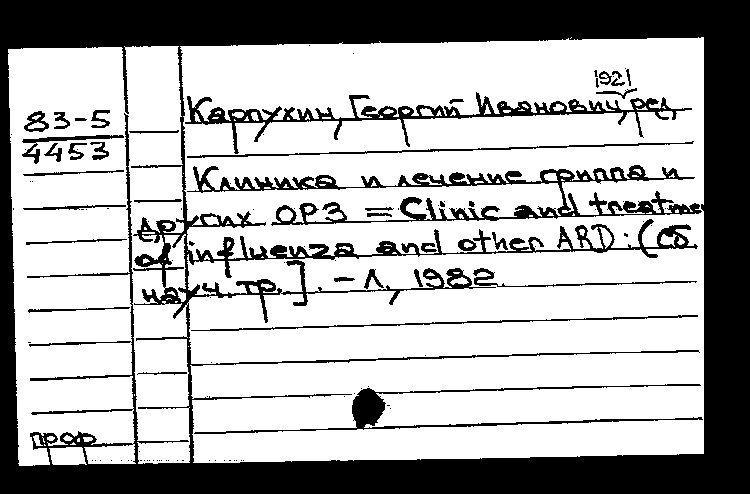 1921
83-5
4453
Карпухин, Георгий Иванович, ред.
Клиника и лечение гриппа и
других ОРЗ = Clinic and treatme
of influenza and other ARD: (Сб.
науч. тр.]. - Л., 1982.
проф